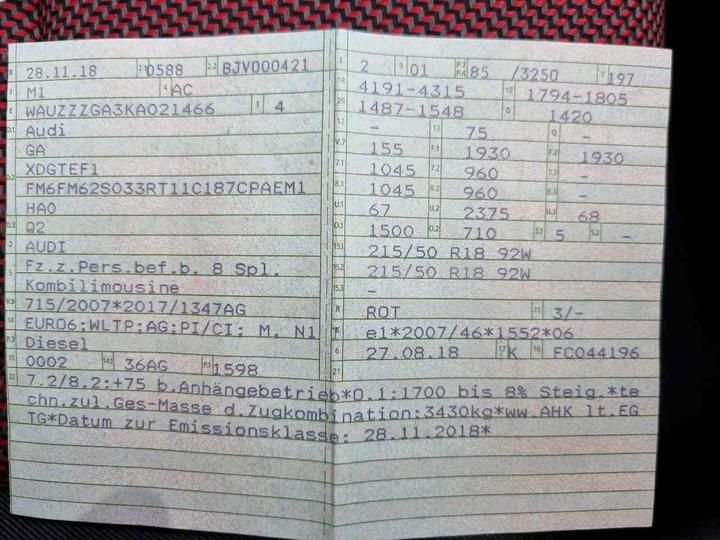 B 28.11.18 2.1 0588 2.2 BJV000421
J M1 4 AC
E WAUZZZGA3KA021466 3 4
D.1 Audi
GA
D.2 XDGTEF1
FM6FM62S033RT11C187CPAEM1
HA0
D.3 Q2
2 AUDI
5 Fz.z.Pers.bef.b. 8 Spl.
Kombilimousine
V.9 715/2007*2017/1347AG
14 EURO6;WLTP;AG;PI/CI; M, N1
P.3 Diesel
10 0002 14.1 36AG P.1 1598
L 2 9 01 P.2 P.4 85 /3250 T 197
18 4191-4315 19 1794-1805
20 1487-1548 G 1420
12 – 13 75 Q –
V.7 155 F.1 1930 F.2 1930
7.1 1045 7.2 960 7.3 –
8.1 1045 8.2 960 8.3 –
U.1 67 U.2 2375 U.3 68
O.1 1500 O.2 710 S.1 5 S.2 –
15.1 215/50 R18 92W
15.2 215/50 R18 92W
15.3 –
R ROT 11 3/–
K e1*2007/46*1552*06
6 27.08.18 17 K 16 FC044196
21
22 7.2/8.2:+75 b.Anhängebetrieb*O.1:1700 bis 8% Steig.*te
chn.zul.Ges-Masse d.Zugkombination:3430kg*ww.AHK lt.EG
TG*Datum zur Emissionsklasse: 28.11.2018*